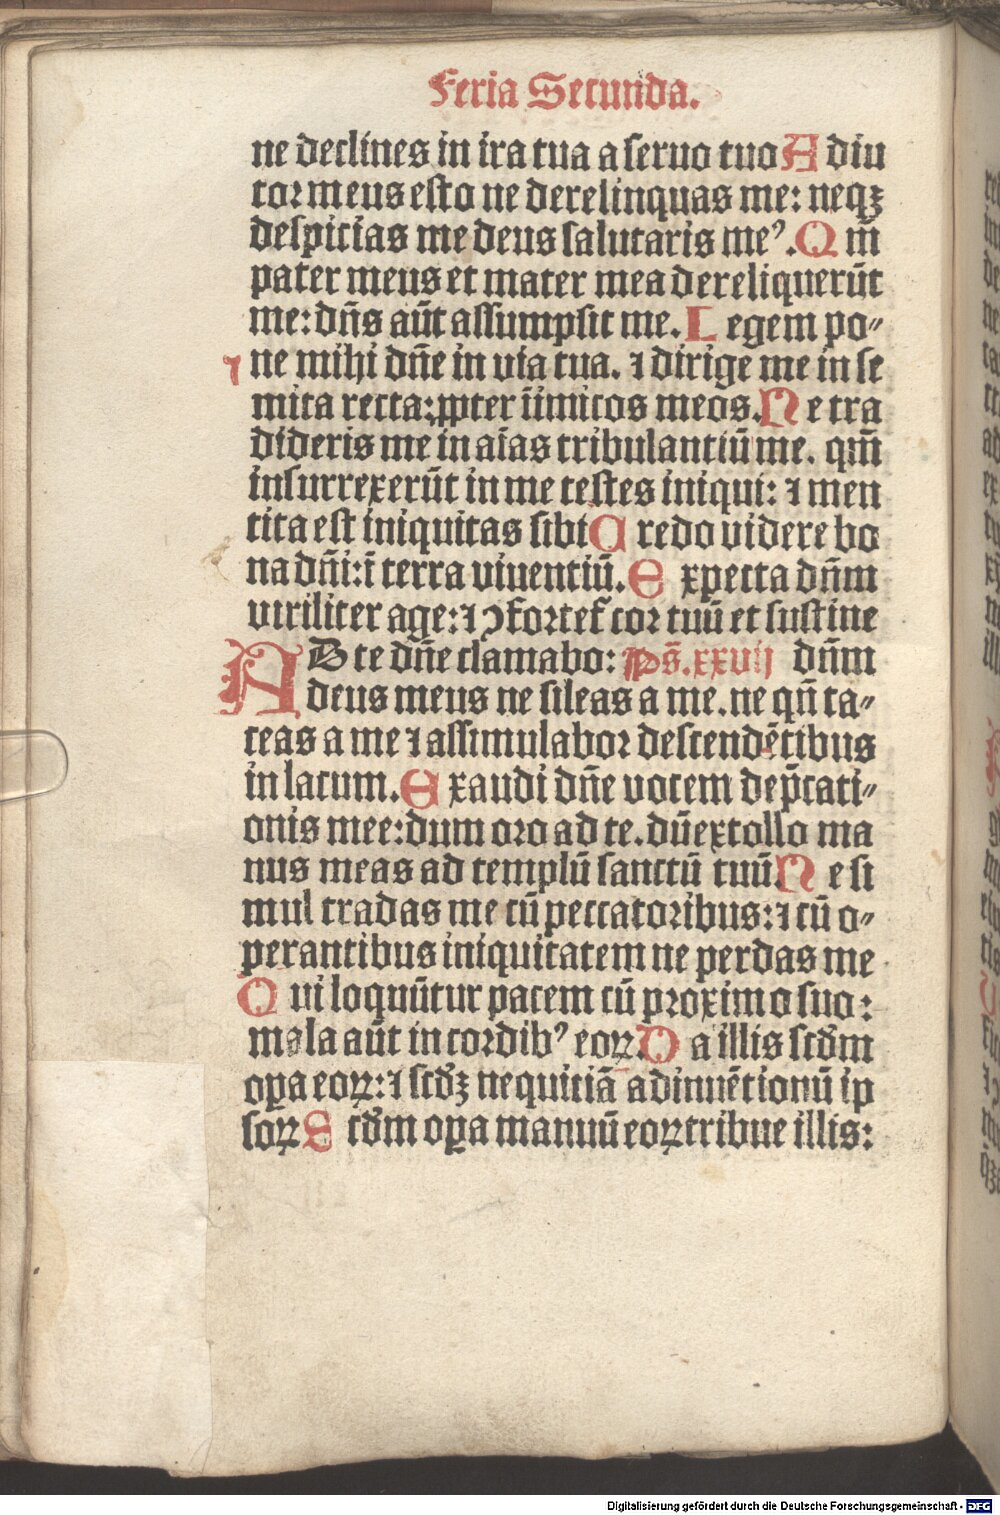 Feria Secunda.
ne declines in ira tua a seruo tuo A diu
tor meus esto ne derelinquas me: neqꝫ
despicias me deus salutaris meꝰ. Q m̄
pater meus et mater mea dereliquerūt
me: dn̄s aūt assumpsit me. L egem po⸗
ne mihi dn̄e in via tua. ⁊ dirige me in se
mita recta: ꝓpter īimicos meos. N e tra
dideris me in aīas tribulantiū me. qm̄
insurrexerūt in me testes iniqui: ⁊ men
tita est iniquitas sibi C redo videre bo
na dn̄i: ī terra viuentiū. E xpecta dn̄m
viriliter age: ⁊ ↄfortet᷑ cor tuū et sustine
A D te dn̄e clamabo: Ps̄. xxvij dn̄m
deus meus ne sileas a me. ne qn̄ ta⸗
ceas a me ⁊ assimulabor descendētibus
in lacum. E xaudi dn̄e vocem dep̄cati⸗
onis mee: dum oro ad te. dū extollo ma
nus meas ad templū sanctū tuū. N e si
mul tradas me cū peccatoribus: ⁊ cū o⸗
perantibus iniquitatem ne perdas me
Q ui loquūtur pacem cū proximo suo:
mala aūt in cordibꝰ eoꝝ. D a illis scd̄m
oꝑa eoꝝ: ⁊ scd̄ꝫ nequitiā adinuētionū ip
soꝝ S cd̄m oꝑa manuū eoꝝ tribue illis:
Digitalisierung gefördert durch die Deutsche Forschungsgemeinschaft - DFG